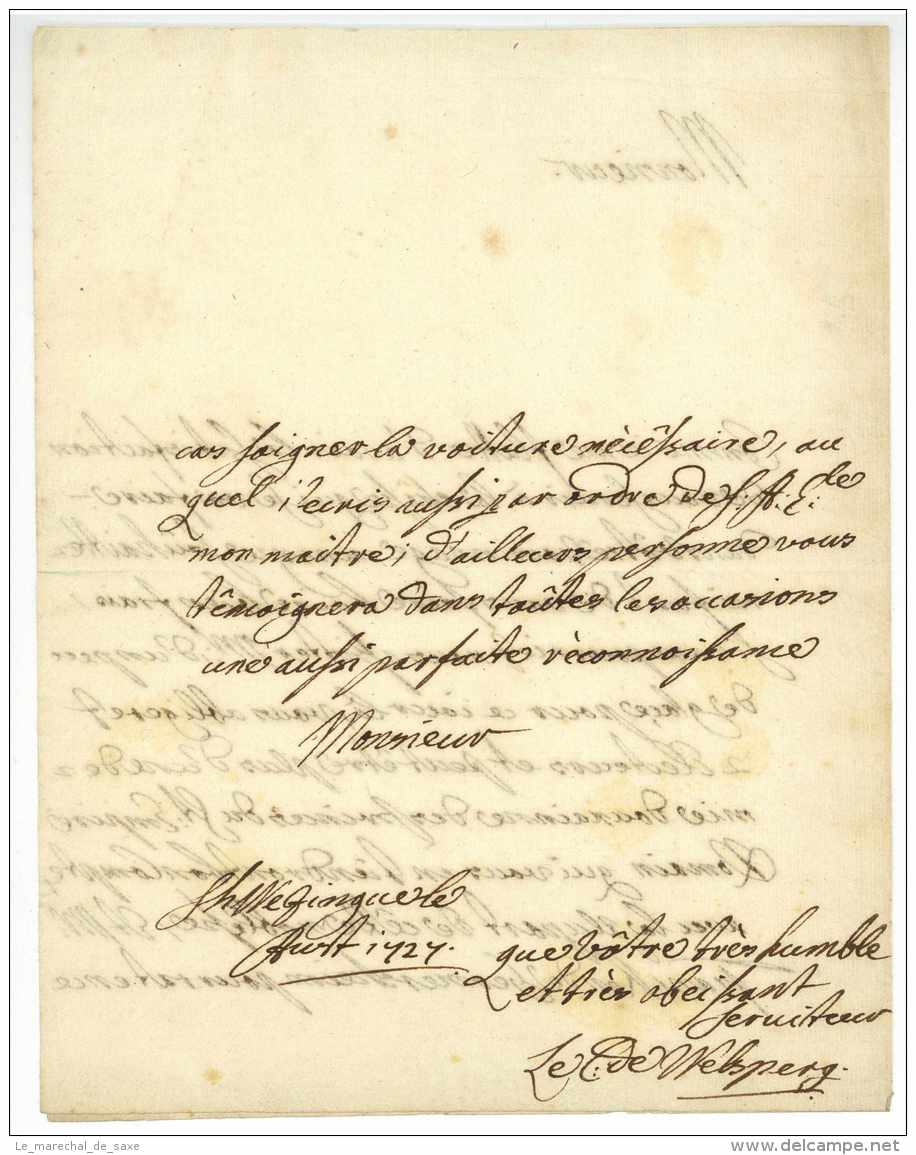 cas soigner la voiture nècêssaire, au
quel j'ecris aussi par ordre de S. A. E.le
mon maitre; d'ailleurs personne vous
têmoignera dans toûtes les occasions
une aussi parfaite rèconnoissance
Monsieur
le
Aust 1727.
que vôtre très humble
et très obeissant
serviteur
Le C. de Welsperg.
Le_marechal_de_saxe
www.delcampe.net